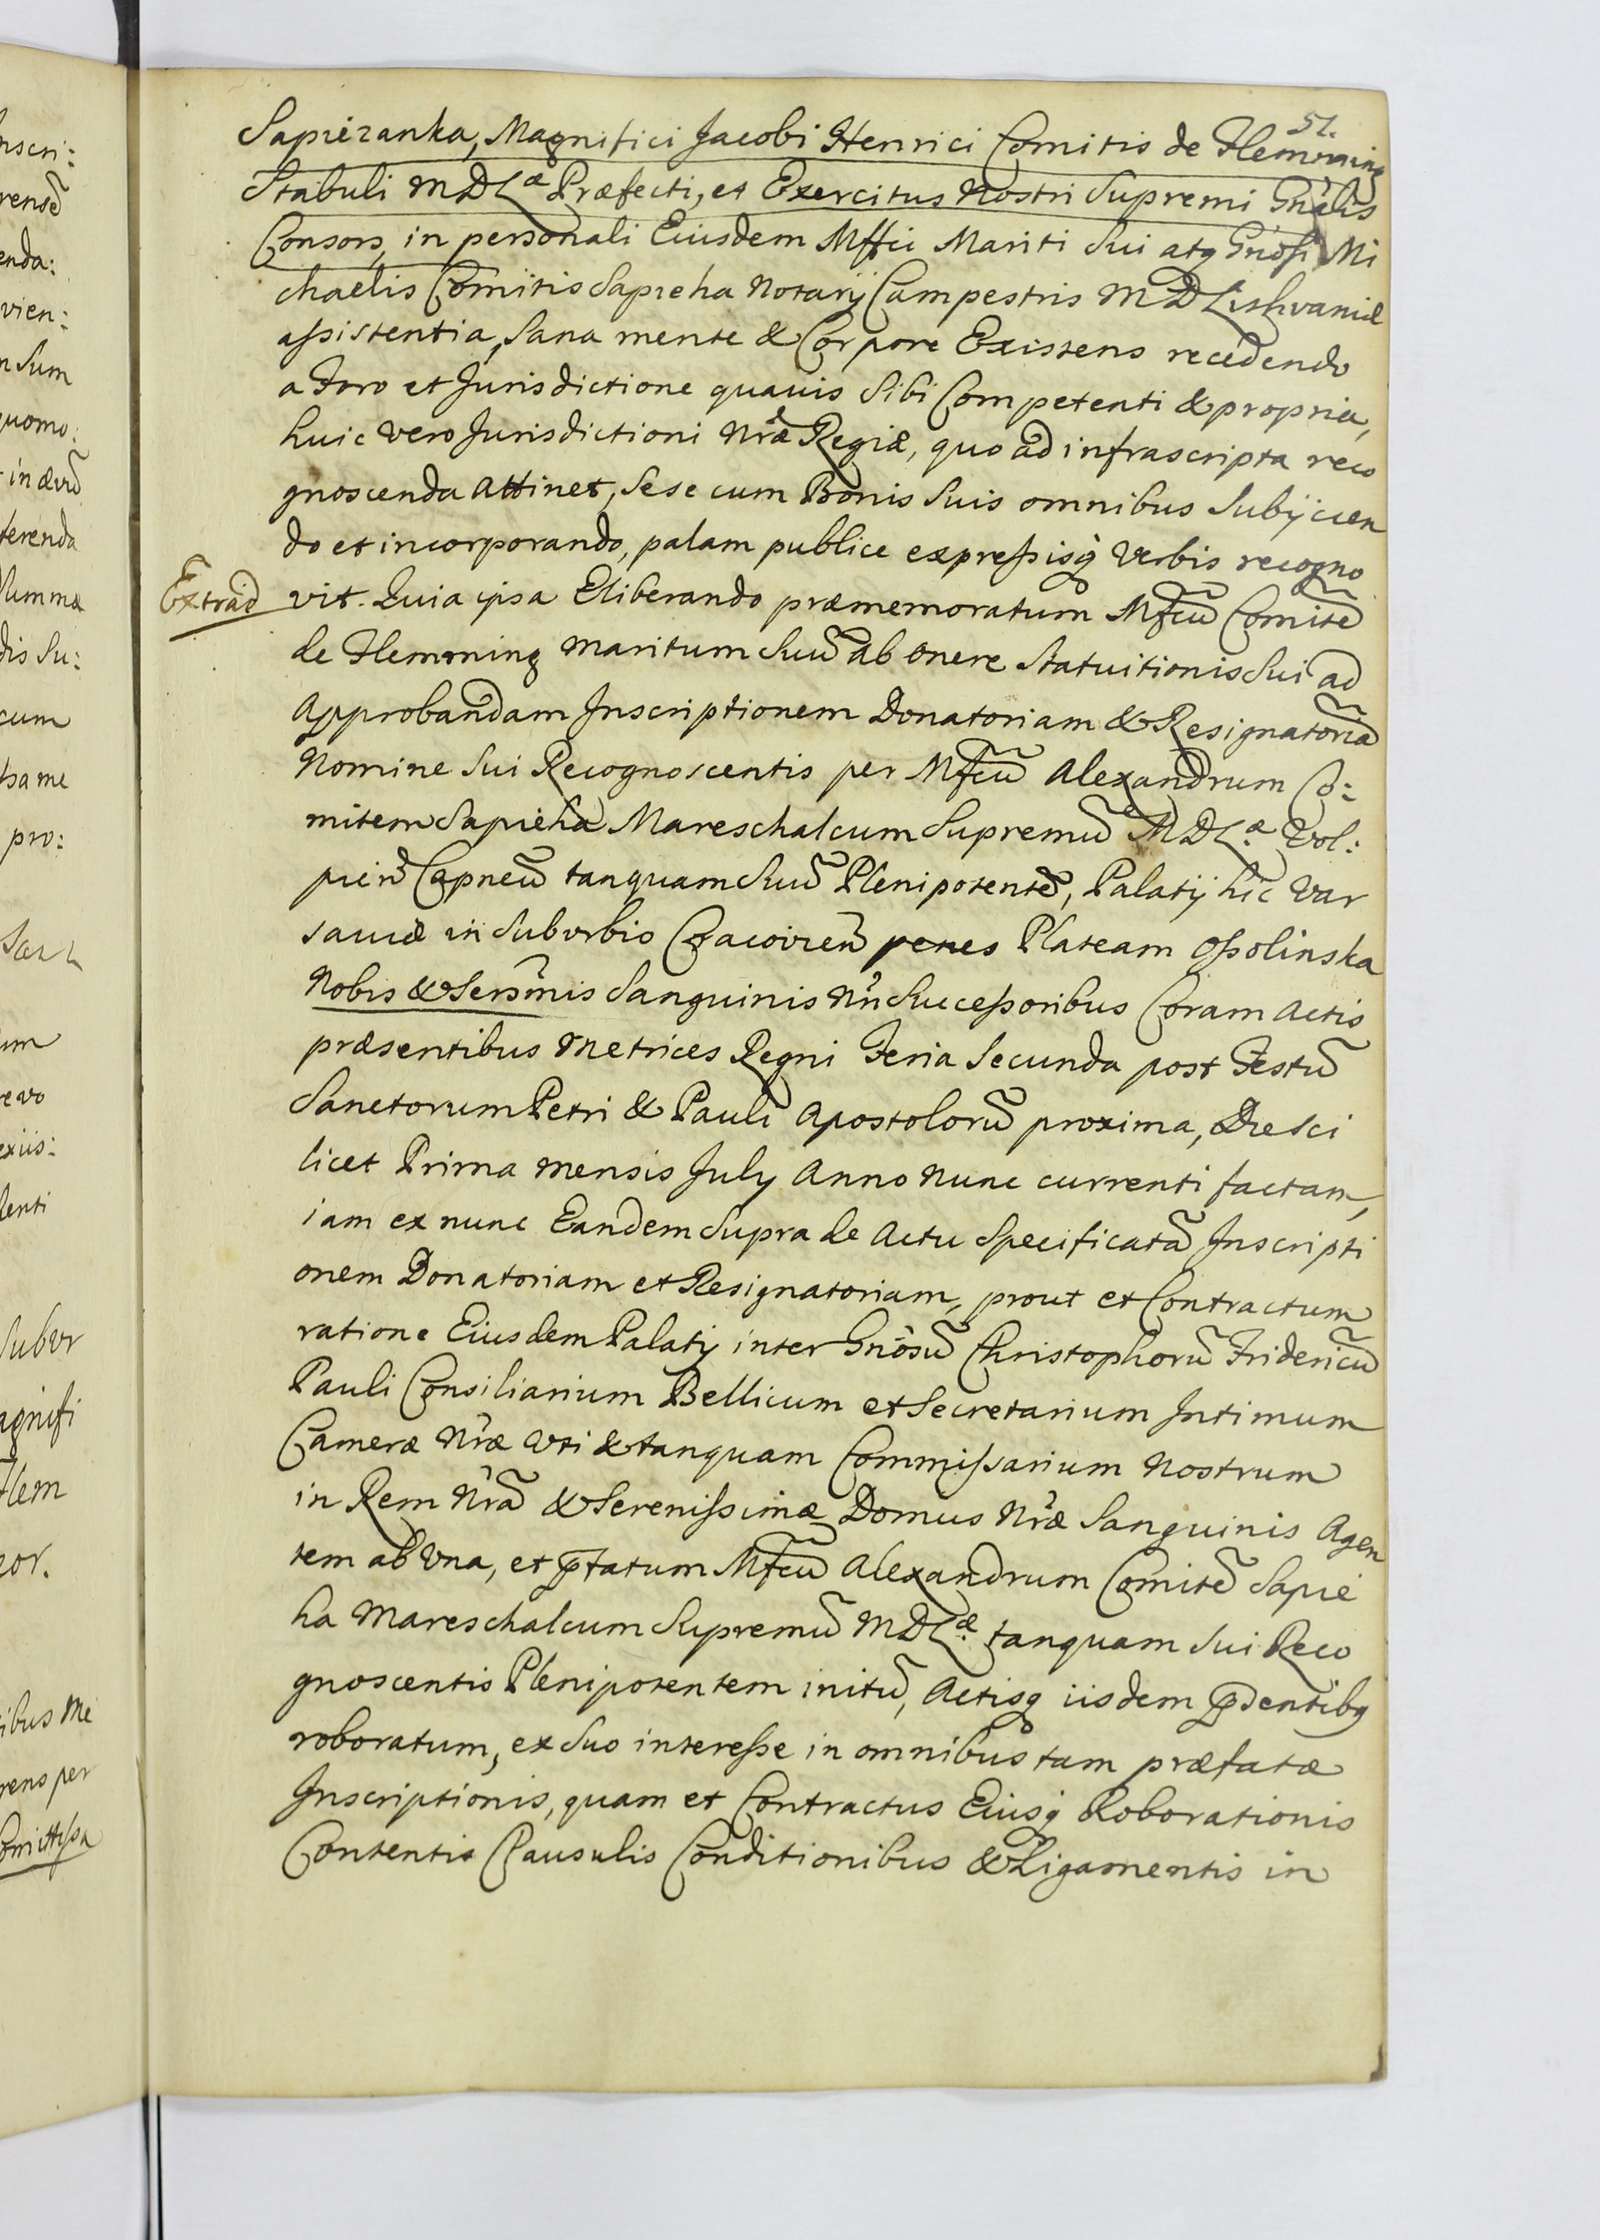 51.
Sapiezanka, Magnifici Jacobi Henrici Comitis de Flemming
Stabuli MDLæ Præfecti, et Exercitus Nostri Supremi Gñalis
Consors, in personali Eiusdem Mffici Mariti Sui atq Gñosi Mi
chaelis Comitis Sapieha Notarij Campestris MD Lithvaniæ
assistentia, Sana mente & Corpore Existens recedendo
a Foro et Jurisdictione quavis Sibi Competenti & propria,
huic vero Jurisdictioni Nræ Regiæ, quo ad infrascripta reco
gnoscenda Attinet, Sese cum Bonis Suis omnibus Subijcien
do et incorporando, palam publice expressisq Verbis recogno
Extrad
vit. Quia ipsa Eliberando præmemoratum Mfcũ Comitẽ
de Flemming Maritum Suũ ab onere Statuitionis Sui ad
Approbandam Inscriptionem Donatoriam & Resignatoriã
Nomine Sui Recognoscentis per Mfcũ Alexandrum Co:
mitem Sapieha Mareschalcum Supremũ MDL.æ Wol:
pien Capneũ tanquam Suũ Plenipotentẽ, Palatij hic Var
saviæ in Suburbio Cracovien penes Plateam Ossolinska
Nobis & Sersmis Sanguinis Nri Successoribus Coram Actis
præsentibus Metrices Regni Feria Secunda post Festũ
Sanctorum Petri & Pauli Apostolorũ proxima, Die sci
licet Prima mensis July Anno Nunc currenti factam,
iam ex nunc Eandem Supra de Actu Specificatã Inscripti
onem Donatoriam et Resignatoriam, prout et Contractum
ratione Eiusdem Palatij inter Gñosũ Christophorũ Fridericũ
Pauli Consiliarium Bellicum et Secretarium Intimum
Cameræ Nræ Vti & tanquam Commissarium Nostrum
in Rem Nrã & Serenissimæ Domus Nræ Sanguinis Agen
tem ab Vna, et pfatum Mfcũ Alexandrum Comitẽ Sapie
ha Mareschalcum Supremũ MDL.æ tanquam Sui Reco
gnoscentis Plenipotentem initũ, Actisq iisdem psentibq
roboratum, ex Suo interesse in omnibus tam præfatæ
Inscriptionis, quam et Contractus Eiusq Roborationis
Contentis Clausulis Conditionibus & Ligamentis in